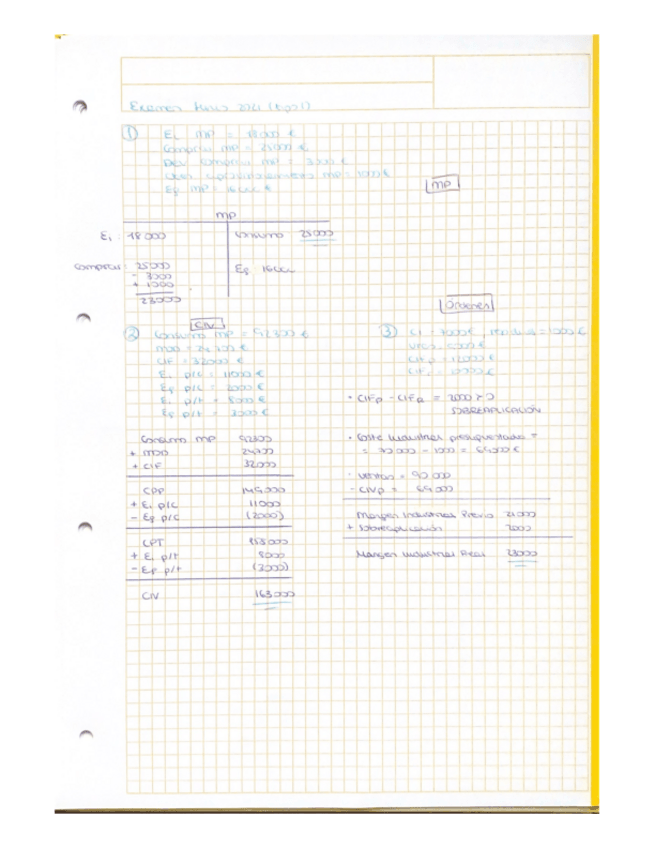 Examen 2021
① Ei MP = 18000 €
Compras MP = 25000 €
Dev compras MP = 3000 €
MP = 1000 €
Ef MP = 16000 €
MP
MP
Ei : 18000
Consumo 25000
Compras : 25000
- 3000
+ 1000
23000
Ef 16000
Órdenes
CIV
② Consumo MP = 92300 €
MOD = 24700 €
CIF = 32000 €
Ei p/c = 11000 €
Ef p/c = 2000 €
Ei p/t = 8000 €
Ef p/t = 3000 €
Consumo MP 92300
+ MOD 24700
+ CIF 32000
CPP 149000
+ Ei p/c 11000
- Ef p/c (2000)
CPT 158000
+ Ei p/t 8000
- Ef p/t (3000)
CIV 163000
③
CIFp = 12000 €
= 10000 €
• CIFp - CIFa = 2000 > 0
SOBREAPLICACIÓN
• Coste industrial presupuestado =
= 70000 - 1000 = 69000 €
• Ventas = 90000
- CIVp = 69000
Margen Industrial Previo 21000
+ Sobreaplicación 2000
Margen Industrial Real 23000